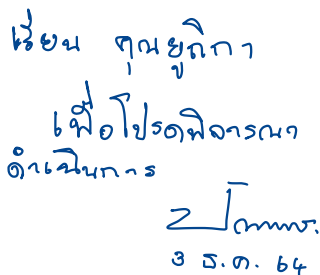 เรียน คุณยูถิกา
เพื่อโปรดพิจารณา
ดำเนินการ
3 ธ.ค. 64